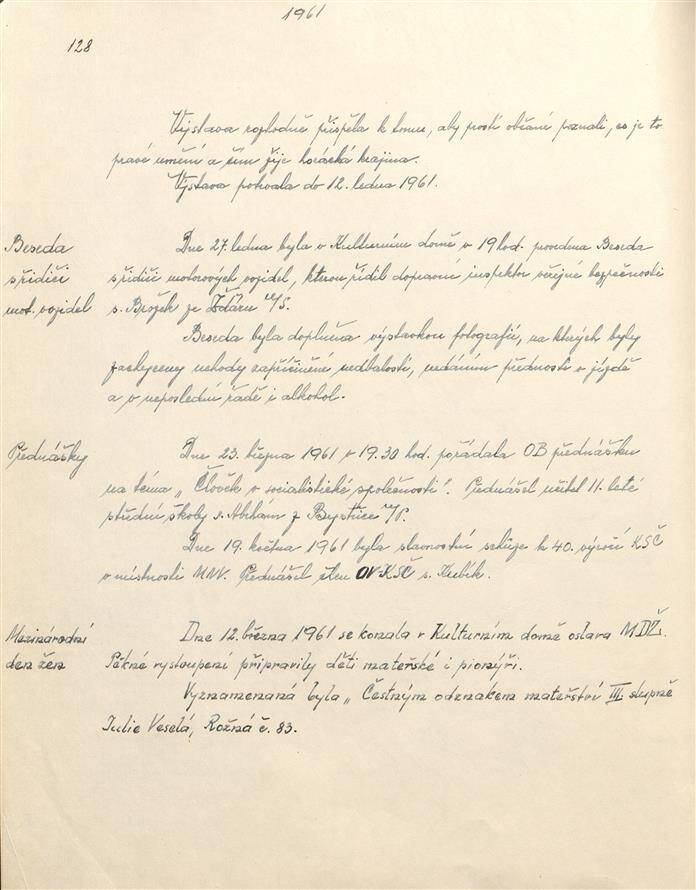 1961
128
Výstava rozhodně přispěla k tomu, aby prostí občané poznali, co je to
pravé umění a čím žije horácká krajina.
Výstava potrvala do 12. ledna 1961.
Beseda
s řidiči
mot. vozidel
Dne 27. ledna byla v Kulturním domě v 19 hod. provedena Beseda
s řidiči motorových vozidel, kterou řídil dopravní inspektor veřejné bezpečnosti
s. Brožek ze Žďáru n/S.
Beseda byla doplněna výstavkou fotografií, na kterých byly
zachyceny nehody zapříčiněné nedbalostí, nedáním přednosti v jízdě
a v neposlední řadě i alkohol.
Přednášky
Dne 23. března 1961 v 19.30 hod. pořádala OB přednášku
na téma „Člověk v socialistické společnosti". Přednášel učitel 11. leté
střední školy s. Abrhám z Bystřice n/P.
Dne 19. května 1961 byla slavnostní schůze k 40. výročí KSČ
v místnosti MNV. Přednášel člen OV-KSČ s. Kubík.
Mezinárodní
den žen
Dne 12. března 1961 se konala v Kulturním domě oslava MDŽ.
Pěkné vystoupení připravily děti mateřské i pionýři.
Vyznamenaná byla „Čestným odznakem mateřství III. stupně
Julie Veselá, Rožná č. 83.